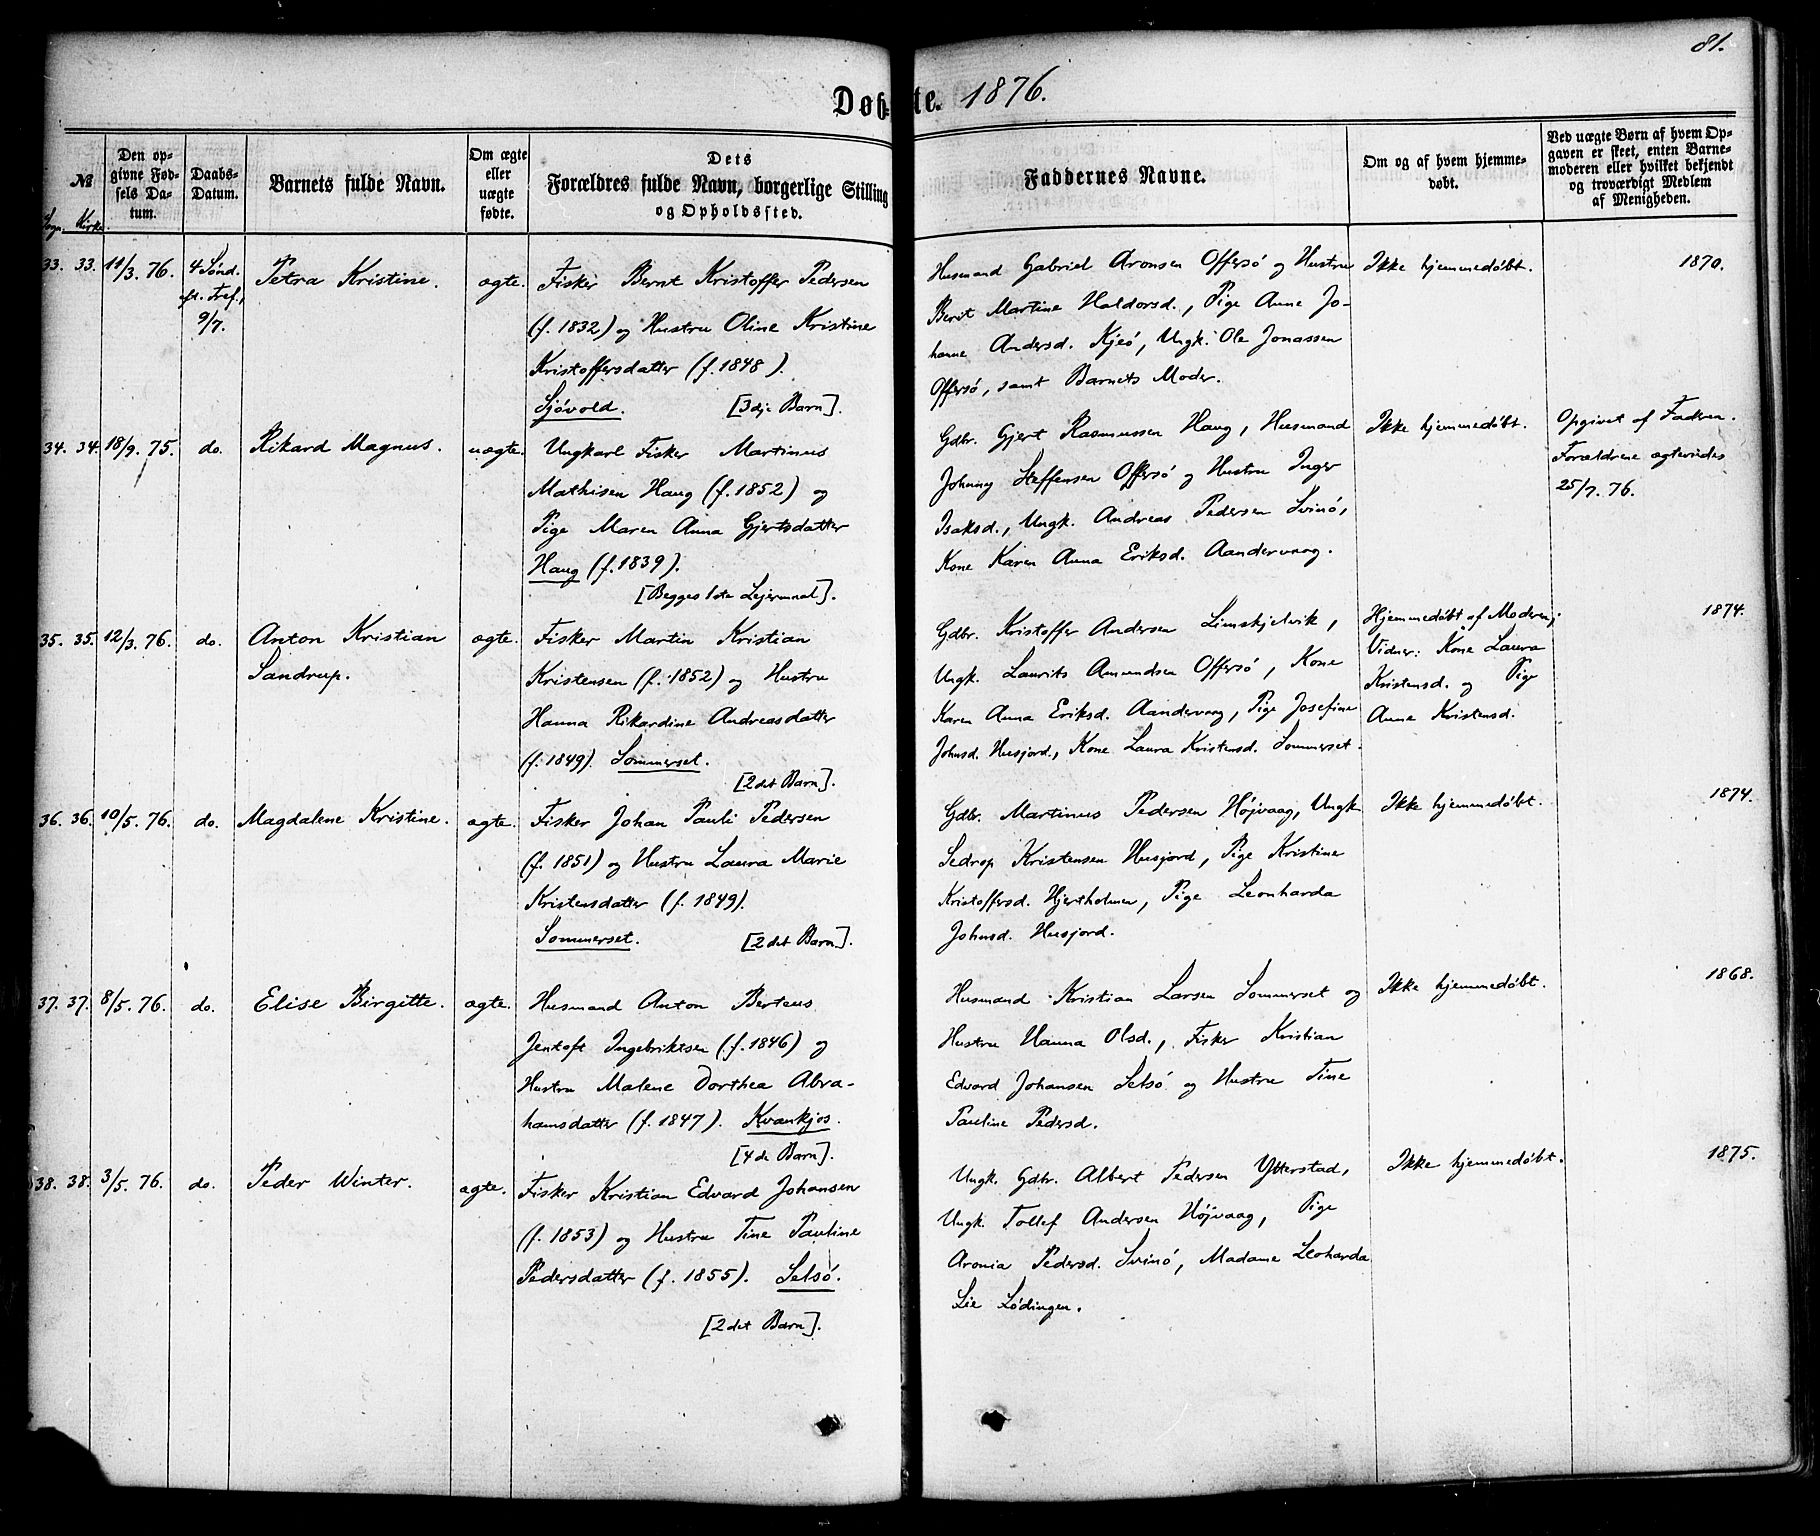 81.
Døbte. 1876.
№
Sogn. Kirke.
Den opgivne Fødsels Datum.
Daabs-Datum.
Barnets fulde Navn.
Om ægte eller uægte fødte.
Dets Forældres fulde Navn, borgerlige Stilling og Opholdssted.
Faddernes Navne.
Om og af hvem hjemmedøbt.
Ved uægte Børn af hvem Opgaven er skeet, enten Barnemoderen eller hvilket bekjendt og troværdigt Medlem af Menigheden.
33. 33. 11/3. 76. 4 Sønd. eft. Tref., 9/7. Petra Kristine. ægte.
Fisker Bernt Kristoffer Pedersen
(f. 1832) og Hustru Oline Kristine
Kristoffersdatter (f. 1848).
Sjövold. [3dje Barn].
Husmand Gabriel Aronsen Offersö og Hustru
Berit Martine Haldorsd., Pige Anne Jo-
hanne Andersd. Kjeö, Ungk. Ole Jonassen
Offersö, samt Barnets Moder.
Ikke hjemmedöbt.
1870.
34. 34. 18/9. 75. do. Rikard Magnus. uægte.
Ungkarl Fisker Martinus
Mathisen Haug (f. 1852) og
Pige Maren Anna Gjertsdatter
Haug (f. 1839).
[Begges 1ste Lejermaal].
Gdbr. Gjert Rasmussen Haug, Husmand
Johnny Steffensen Offersö og Hustru Inger
Isaksd., Ungk. Andreas Pedersen Svinö,
Kone Karen Anna Eriksd. Aandervaag.
Ikke hjemmedöbt.
Opgivet af Fadren.
Forældrene ægtevides
25/7. 76.
35. 35. 12/3. 76. do. Anton Kristian
Sandrup. ægte.
Fisker Martin Kristian
Kristensen (f. 1852) og Hustru
Hanna Rikardine Andreasdatter
(f. 1849). Sommerset.
[2det Barn].
Gdbr. Kristoffer Andersen Limskjelvik,
Ungk. Laurits Amundsen Offersö, Kone
Karen Anna Eriksd. Aandervaag, Pige Josefine
Johnsd. Husjord., Kone Laura Kristensd. Sommerset.
Hjemmedöbt af Moderen;
Vidner: Kone Laura
Kristensd. og Pige
Anne Kristensd.
1874.
36. 36. 10/5. 76. do. Magdalene Kristine. ægte.
Fisker Johan Pauli Pedersen
(f. 1851) og Hustru Laura Marie
Kristensdatter (f. 1849).
Sommerset. [2det Barn].
Gdbr. Martinus Pedersen Höjvaag, Ungk
Sedrop Kristensen Husjord, Pige Kristine
Kristoffersd. Hjertholmen, Pige Leonharda
Johnsd. Husjord.
Ikke hjemmedöbt.
1874.
37. 37. 8/5. 76. do. Elise Birgitte. ægte.
Husmand Anton Berteus
Jentoft Ingebriktsen (f. 1846) og
Hustru Malene Dorthea Abra-
hamsdatter (f. 1847). Kvankjos.
[4de Barn].
Husmand Kristian Larsen Sommerset og
Hustru Hanna Olsd., Fisker Kristian
Edvard Johansen Selsö og Hustru Tine
Pauline Pedersd.
Ikke hjemmedöbt.
1868.
38. 38. 3/5. 76. do. Peder Winter. ægte.
Fisker Kristian Edvard Johansen
(f. 1853) og Hustru Tine Pauline
Pedersdatter (f. 1855). Selsö.
[2det Barn].
Ungk. Gdbr. Albert Pedersen Ytterstad,
Ungk. Tollef Andersen Höjvaag, Pige
Aronia Pedersd. Svinö, Madame Leoharda
Lie Lödingen.
Ikke hjemmedöbt.
1875.